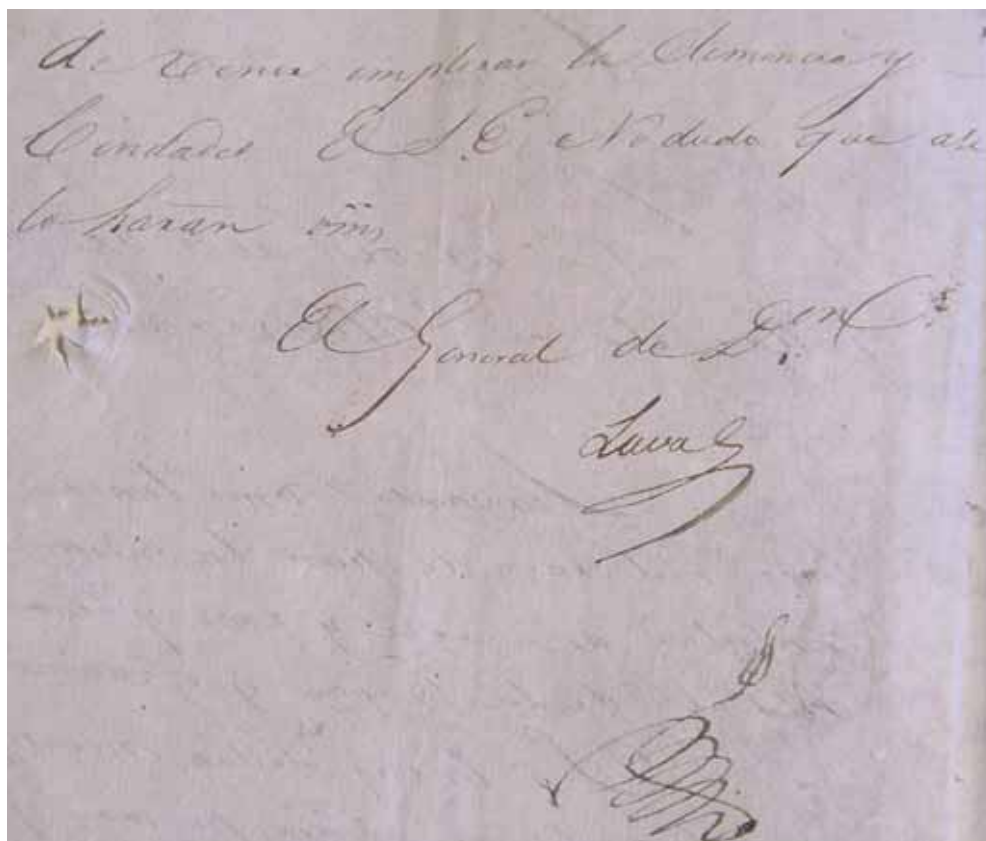 de venir implorar la clemencia y
bondades de S.E. No dudo que asi
lo haran vms
El General de D.on C.s
Laval